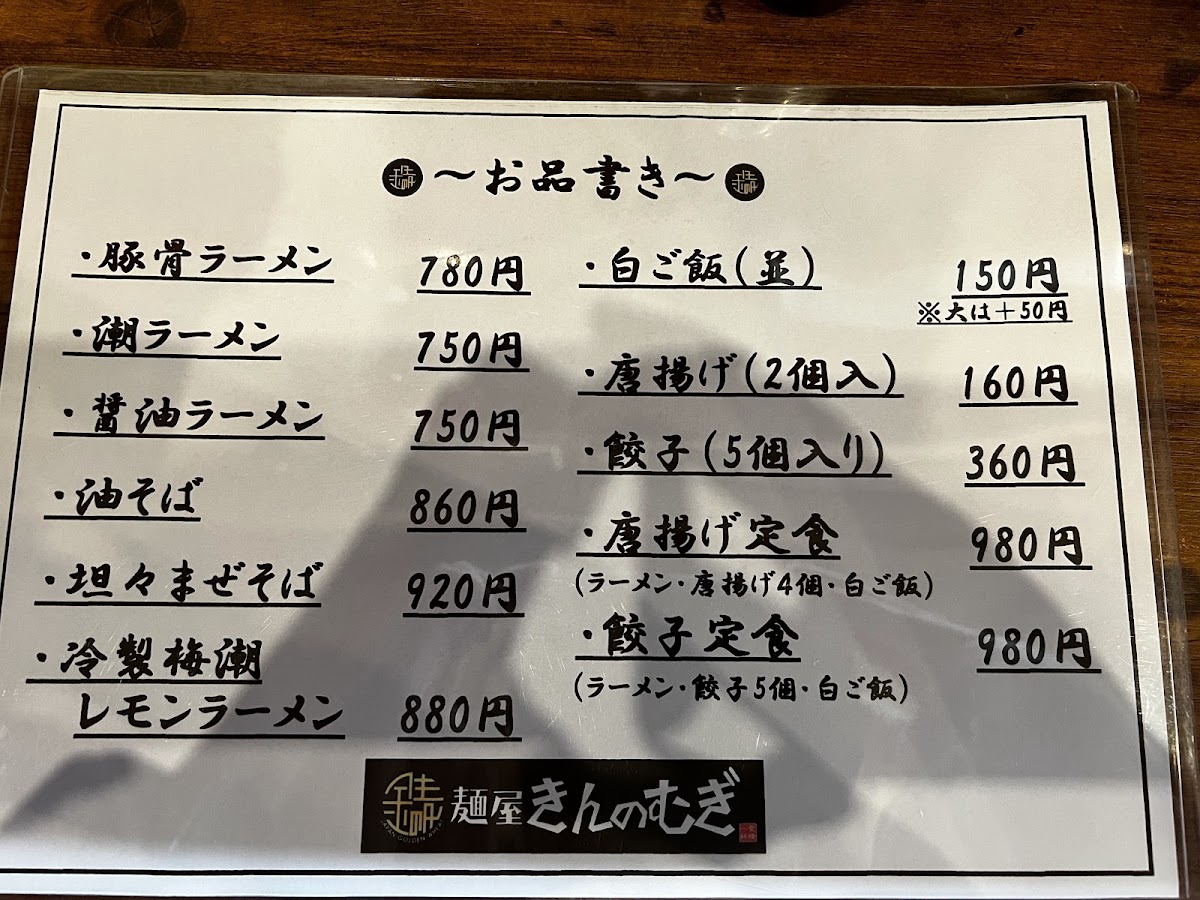 ~お品書き~
・豚骨ラーメン 780円
・潮ラーメン 750円
・醤油ラーメン 750円
・油そば 860円
・坦々まぜそば 920円
・冷製梅潮
レモンラーメン 880円
・白ご飯(並) 150円
※大は+50円
・唐揚げ(2個入) 160円
・餃子(5個入り) 360円
・唐揚げ定食 980円
(ラーメン・唐揚げ4個・白ご飯)
・餃子定食 980円
(ラーメン・餃子5個・白ご飯)
麺屋 きんのむぎ